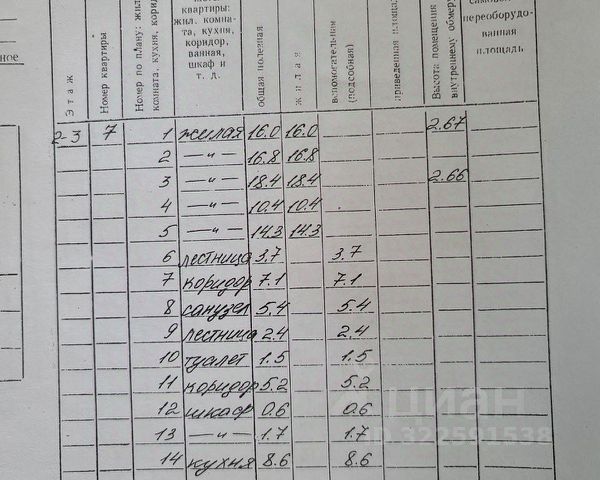 ное
Этаж
Номер квартиры
Номер по плану: жил.
комната, кухня, корид
квартиры:
жил. комна-
та, кухня,
коридор,
ванная,
шкаф и
т. д.
общая полезная
жилая
вспомогательная
(подсобная)
приведенная площадь
Высота помещения
внутреннему обмеру
переоборудо-
ванная
площадь
2-3 7 1 жилая 16.0 16.0 2.67
2 —"— 16.8 16.8
3 —"— 18.4 18.4 2.66
4 —"— 10.4 10.4
5 —"— 14.3 14.3
6 лестница 3.7 3.7
7 коридор 7.1 7.1
8 санузел 5.4 5.4
9 лестница 2.4 2.4
10 туалет 1.5 1.5
11 коридор 5.2 5.2
12 шкаф 0.6 0.6
13 —"— 1.7 1.7
14 кухня 8.6 8.6
циан
ID 322591538